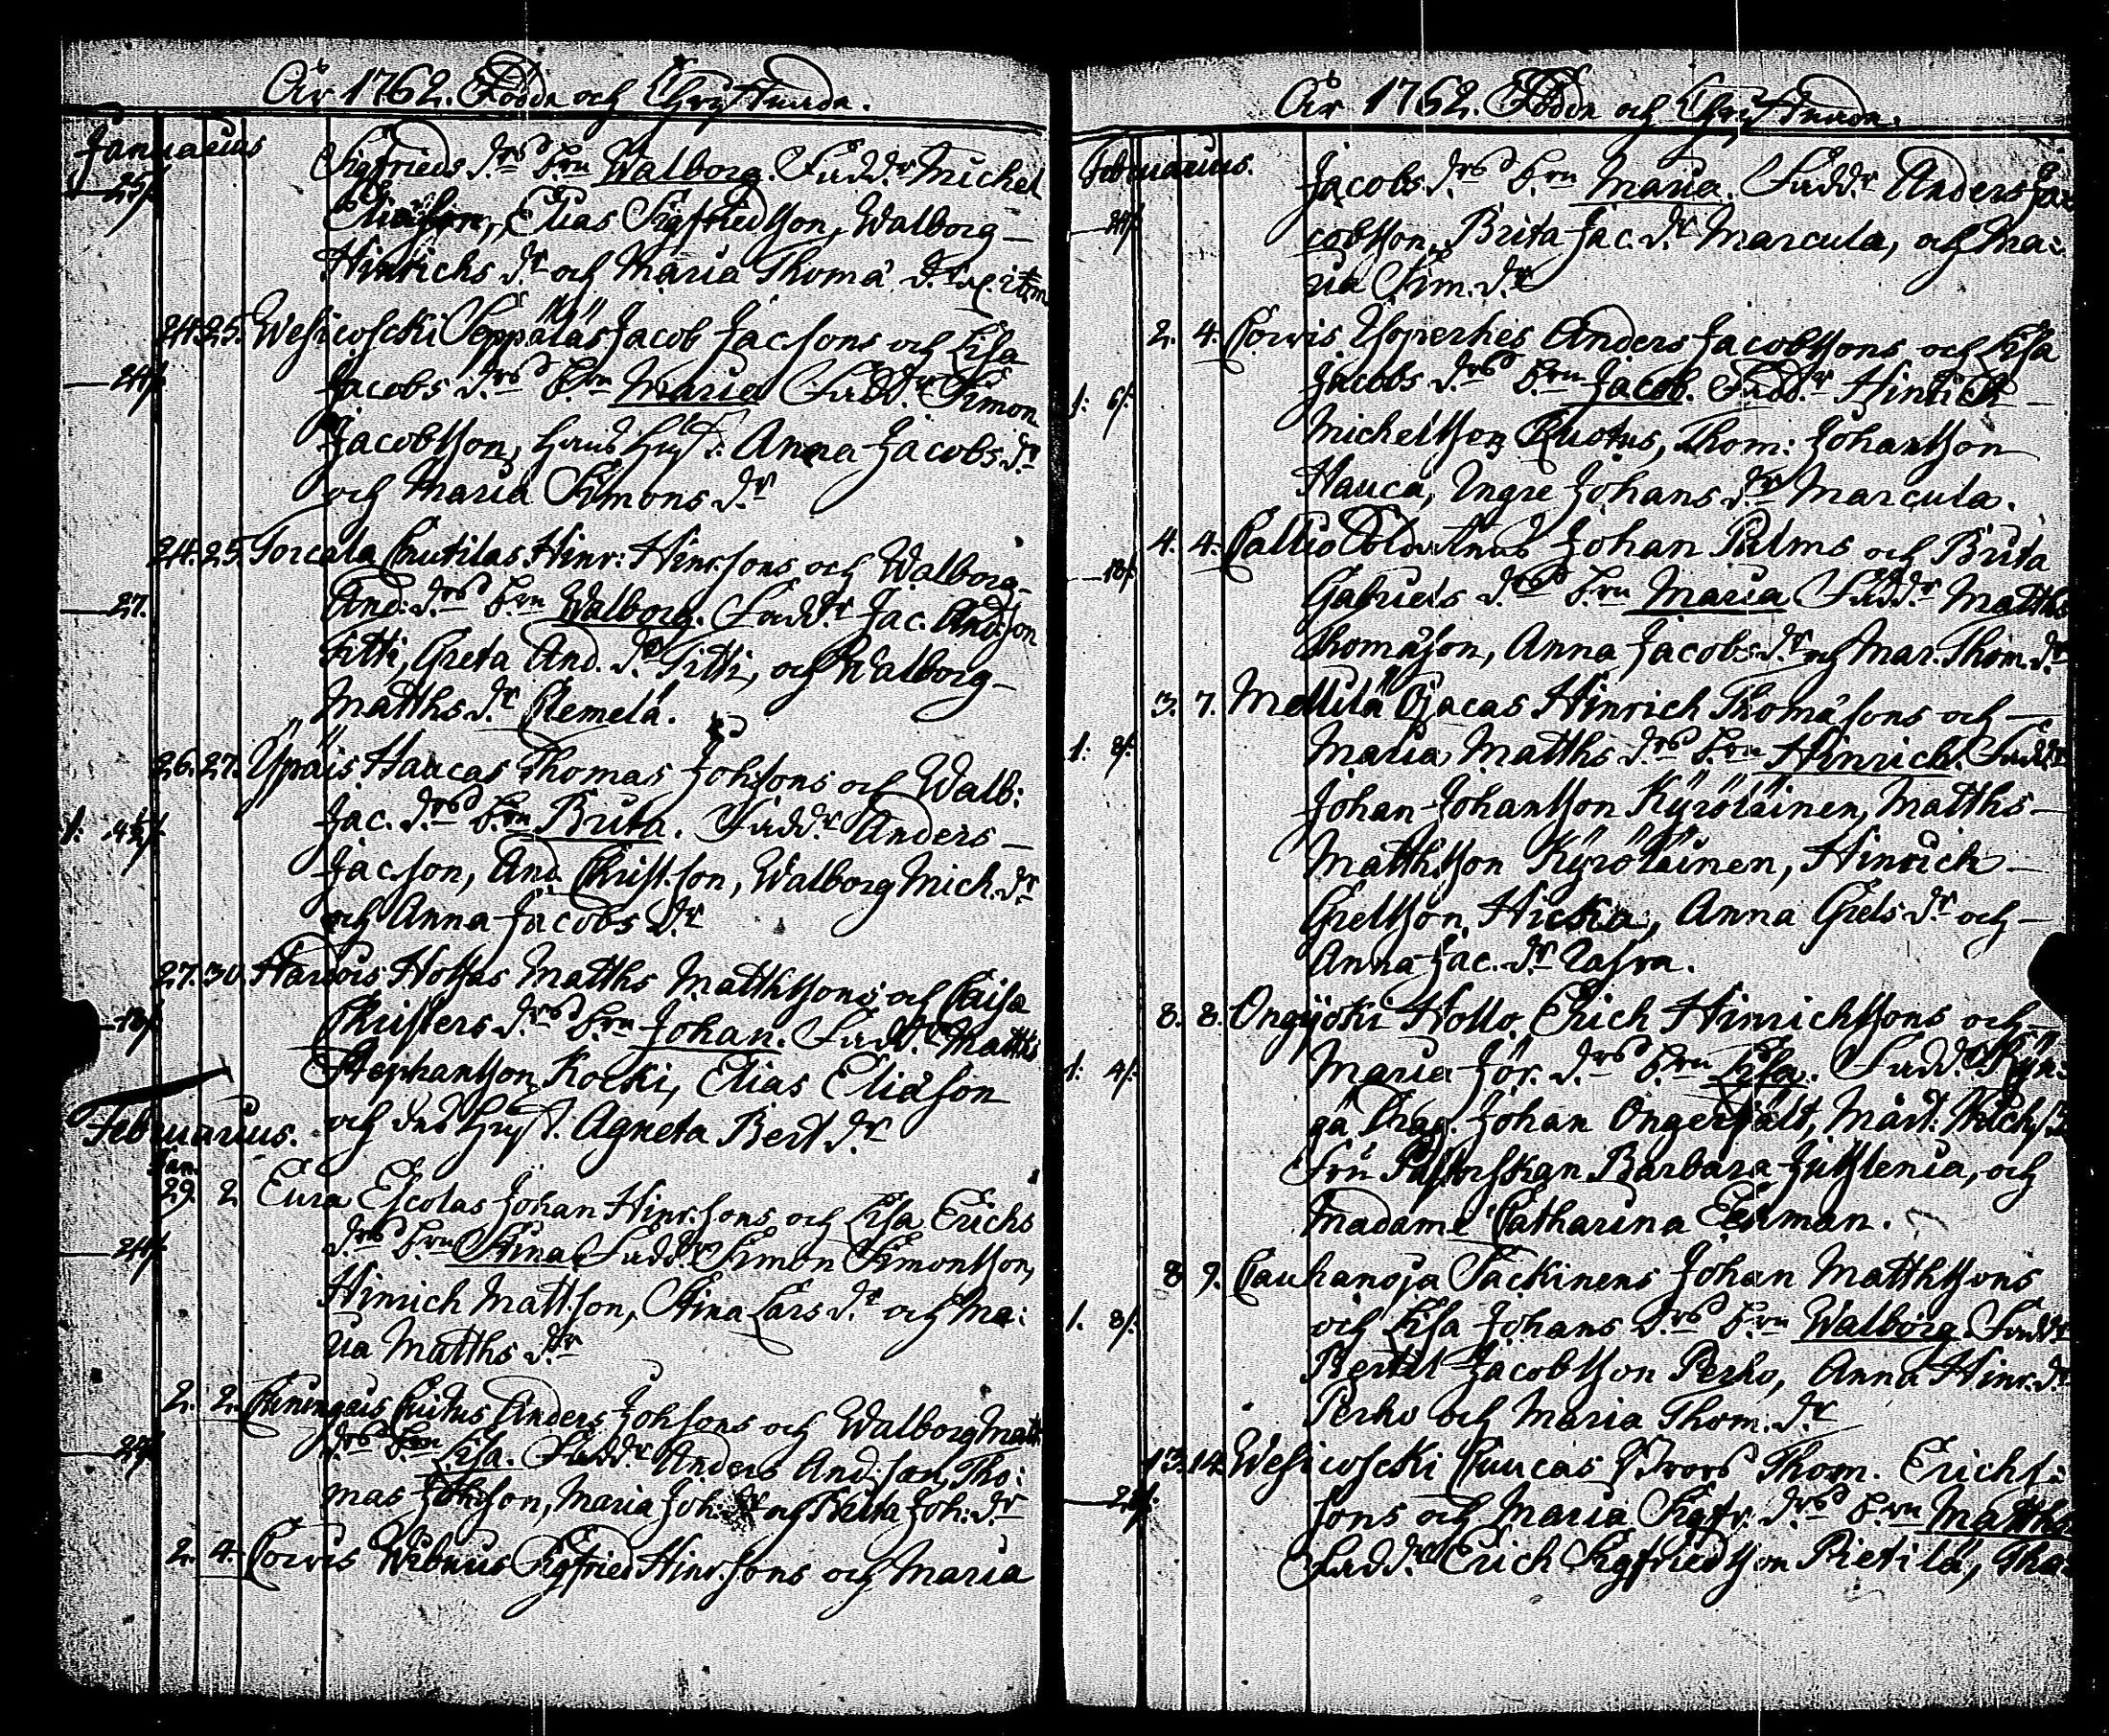 År 1762. Födde och Christnade.
Januarius
25/. Sigfrieds d.rs b.rn Walborg. Fadd.r Michel
Eliasson, Elias Sigfriedsson, Walborg
Hinrichs d.r och Maria Thomæ d.r
24. 25. Wesicoscki Seppäläs Jacob Jacsons och Lisa
24/. Jacobs d.rs b.rn Maria Fadd.r Simon
Jacobsson, hans hust. Anna Jacobs d.r
och Maria Simons d.r
24. 25. Torcala Knutilas Hinr: Hinr.sons och Walborg
27. And: d.rs b.rn Walborg. Fadd.r Jac. And.son
Titti, Greta And. d.r Titti, och Walborg
Matths d.r Klemelä.
26. 27. Ypäis Haucas Thomas Johsons och Walb:
1: 4½/. Jac. d.rs b.rn Brita. Fadd.r Anders
Jacson, And. Christ.son, Walborg Mich. d.r
och Anna Jacobs d.r
27. 30. Harois Matths Matthssons och Caisa
18/. Christers d.rs b.rn Johan. Fadd.r Matths
Stephansson Kocki, Elias Eliæson
och des Hust. Agneta Bert. d.r
Februarius.
Jan.
29. 2. Eura Escolas Johan Hinr.sons och Lisa Erichs
24/. d.rs b.rn Stina Fadd.r Simon Simonsson,
Hinrich Matt.son, Stina Lars d.r och Ma:
ria Matths d.r
2. 2. Anders Johsons och Walborg Matt
27/. d.rs b.rn Lisa. Fadd.r Anders And.son, Tho:
mas Johsson, Maria Joh. d.r och Brita Joh: d.r
2. 4. Corvis Sigfried Hinr.sons och Maria
År 1762. Födde och Christnade.
Februarius.
Jacobs d.rs b.rn Maria. Fadd.r Anders Ja:
24/. cobsson, Brita Jac. d.r Marcula, och Ma:
ria Sim. d.r
2. 4. Corvis Anders Jacobssons och Lisa
1: 6/. Jacobs d.rs b.rn Jacob. Fadd.r Hinrich
Michelsson Thom: Johansson
Hauca, Ingre Johans d.r Marcula.
4. 4. Callio Johan Palms och Brita
18/. Gabriels d.rs b.rn Maria Fadd.r Matths
Thomæson, Anna Jacobs d.r och Mar. Thom. d.r
3. 7. Mellilä Ojacas Hinrich Thomæsons och
1: 8/. Maria Matths d.rs b.rn Hinrich. Fadd.r
Johan Johansson Kyröläinen, Matths
Matthsson Kyröläinen, Hinrich
Grelsson Hicka, Anna Grels d.r och
Anna Jac. d.r
8. 8. Ongijoki Hollo Erich Hinrichssons och
1: 4/. Maria Jör. d.rs b.rn Lisa. Fadd.r
Drag. Johan Mårt:
Fru Pastorskan Barbara och
Madame Catharina Ekman.
8. 9. Cauhanoja Sackinens Johan Matthssons
1. 8/. och Lisa Johans d.rs b.rn Walborg. Fadd.r
Bertil Jacobsson Perho, Anna Hinr. d.r
Perho och Maria Thom. d.r
13. 14. Wesicoscki Thom. Erichs:
24/. sons och Maria Sigfr. d.rs b.rn Matths
Fadd.r Erich Sigfriedsson Pietilä, Tho: